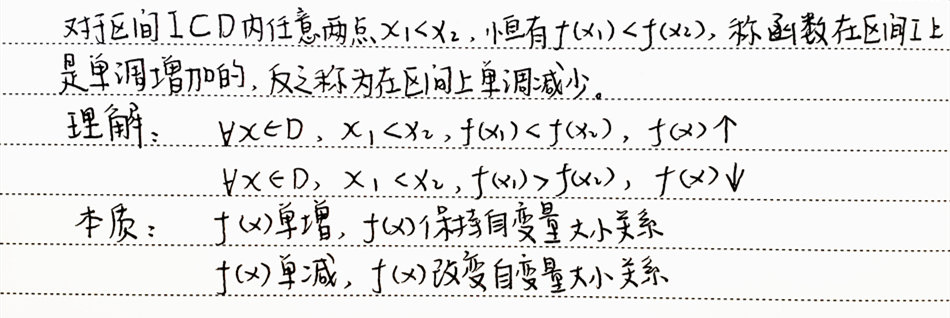 对于区间I⊂D内任意两点x₁<x₂,恒有f(x₁)<f(x₂),称函数在区间I上
是单调增加的,反之称为在区间上单调减少。
理解: ∀x∈D, x₁<x₂, f(x₁)<f(x₂), f(x)↑
∀x∈D, x₁<x₂, f(x₁)>f(x₂), f(x)↓
本质: f(x)单增, f(x)保持自变量大小关系
f(x)单减, f(x)改变自变量大小关系